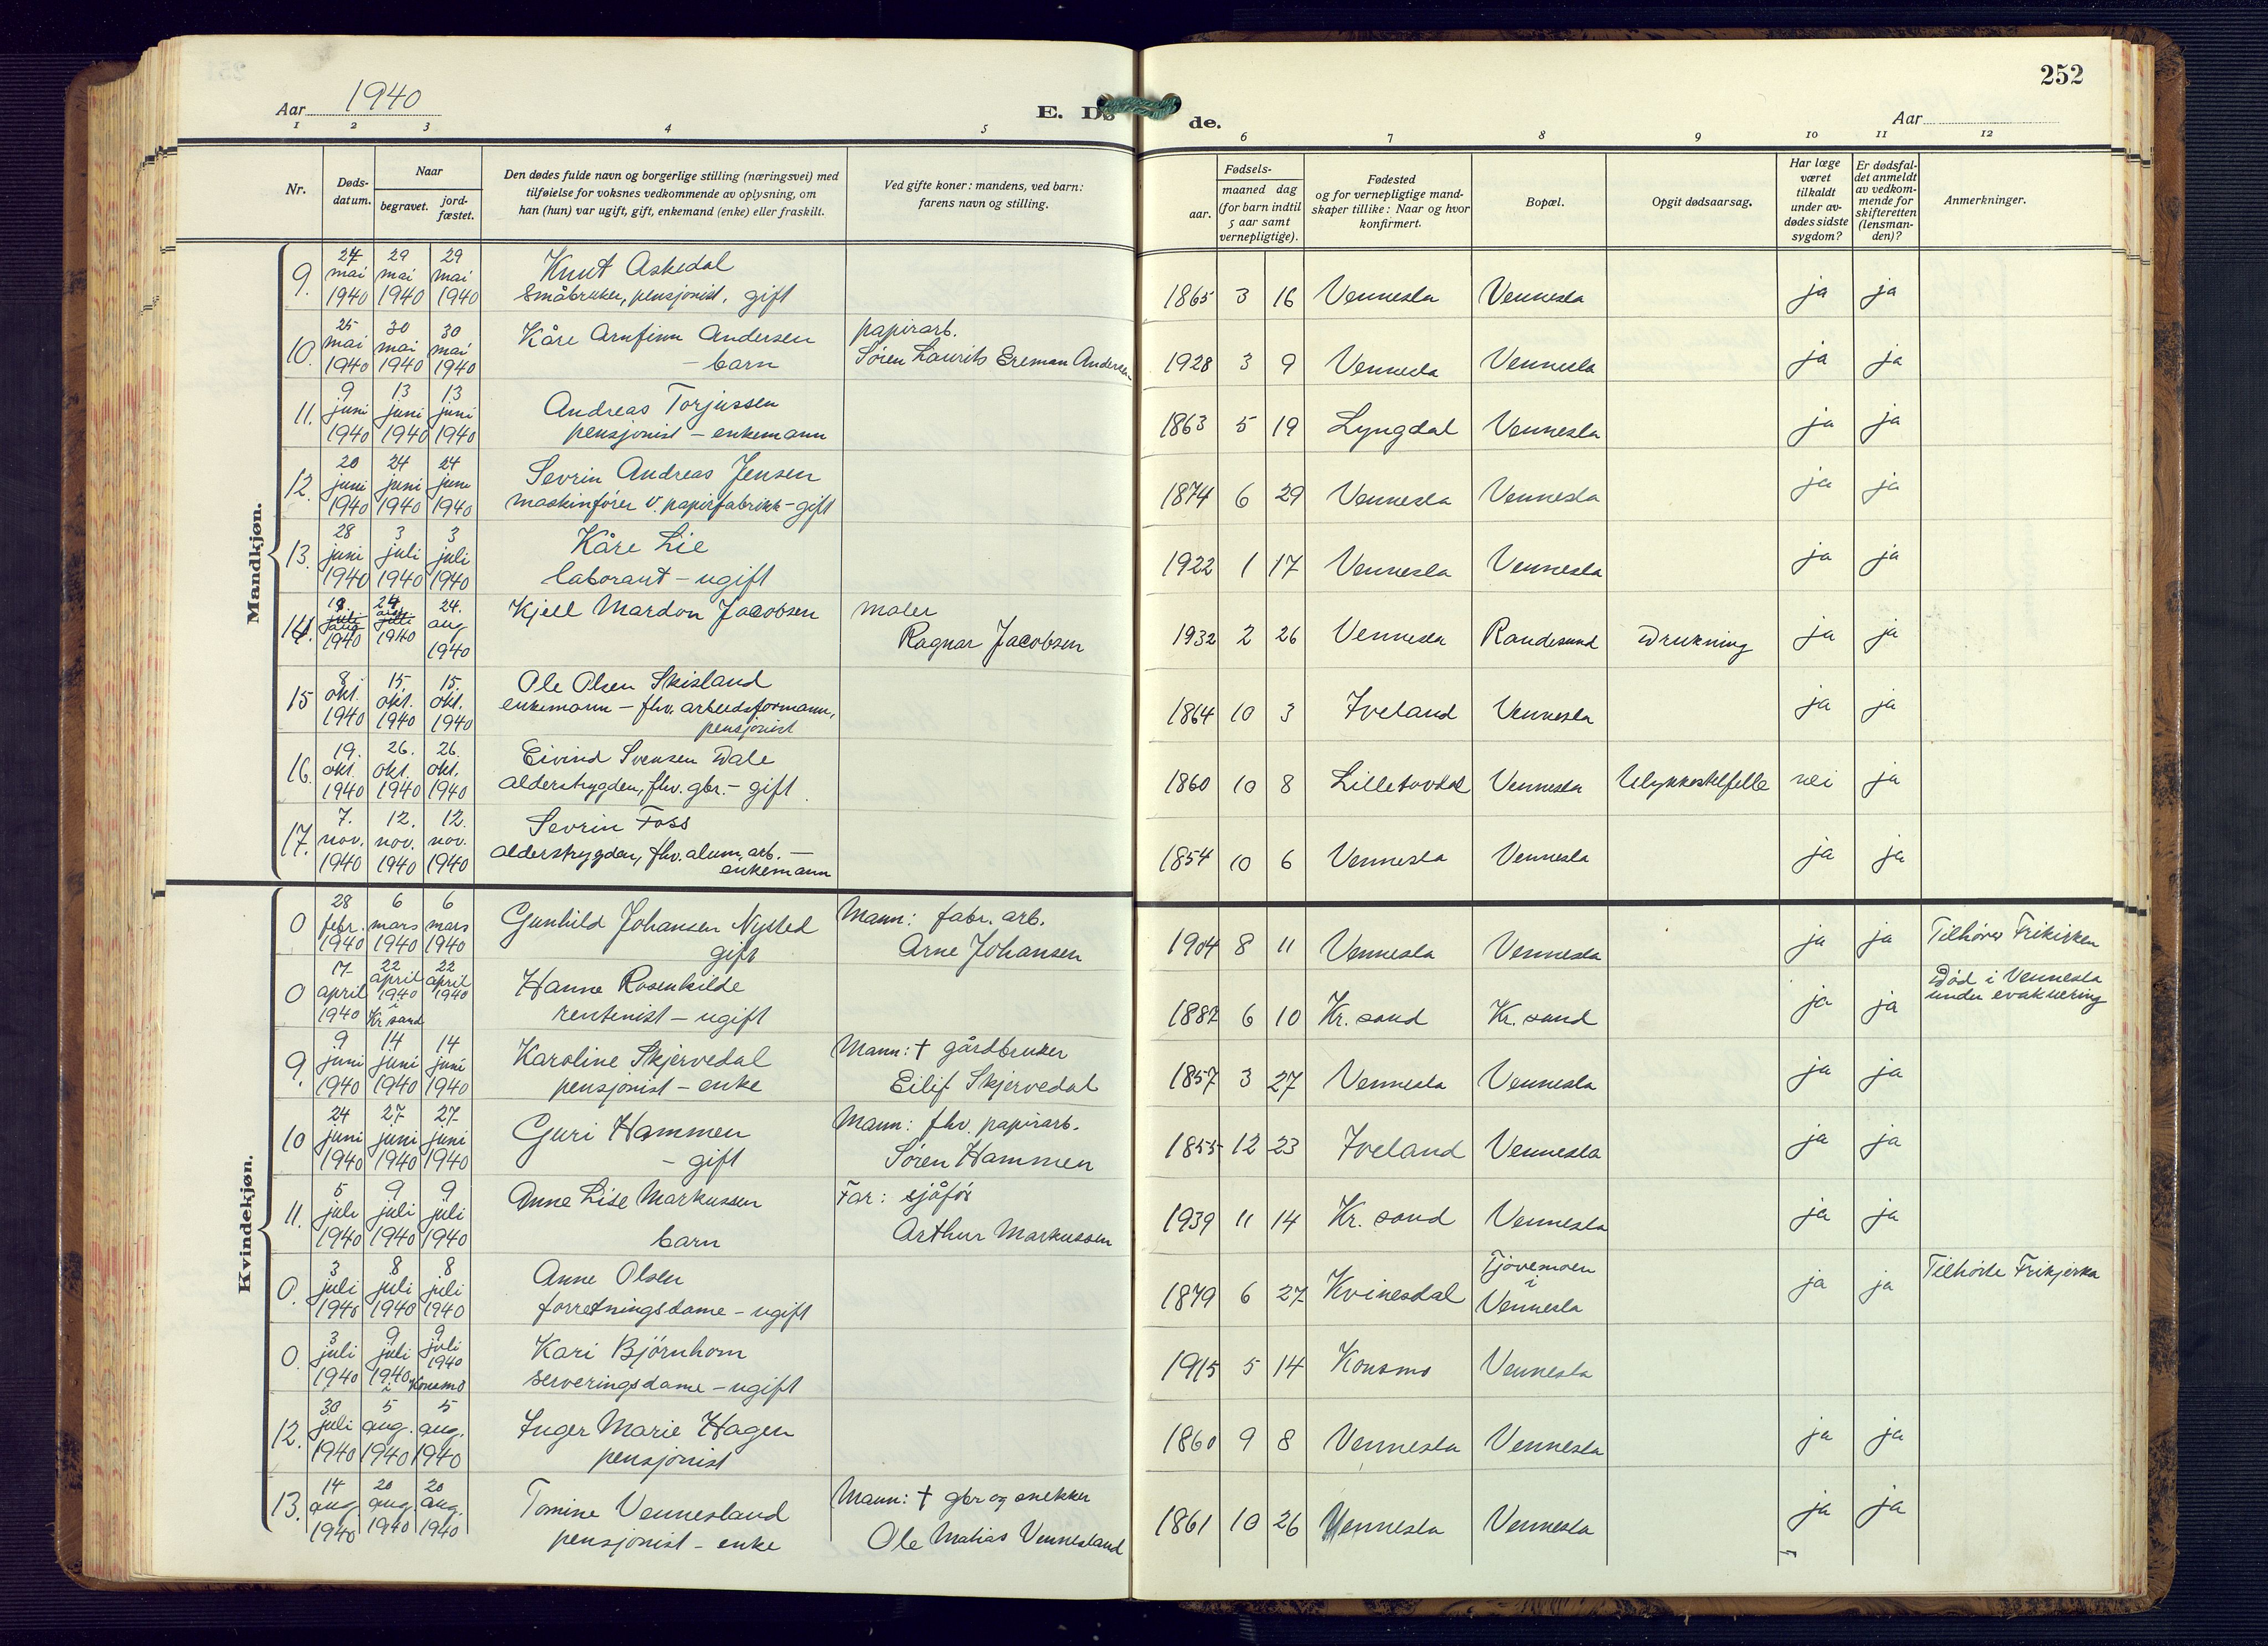 252
Aar 1940
E. Dø
de.
Aar
1 2 3 4 5 6 7 8 9 10 11 12
Nr.
Døds-
datum.
Naar
begravet.
jord-
fæstet.
Den dødes fulde navn og borgerlige stilling (næringsvei) med
tilføielse for voksnes vedkommende av oplysning, om
han (hun) var ugift, gift, enkemand (enke) eller fraskilt.
Ved gifte koner: mandens, ved barn:
farens navn og stilling.
Fødsels-
aar.
maaned dag
(for barn indtil
5 aar samt
vernepligtige).
Fødested
og for vernepligtige mand-
skaper tillike: Naar og hvor
konfirmert.
Bopæl.
Opgit dødsaarsag.
Har læge
været
tilkaldt
under av-
dødes sidste
sygdom?
Er dødsfal-
det anmeldt
av vedkom-
mende for
skifteretten
(lensman-
den)?
Anmerkninger.
Mandkjøn.
24 29 29
9. mai mai mai Knut Askedal
1940 1940 1940 Småbruker, pensjonist, gift 1865 3 16 Vennesla Vennesla ja ja
25 30 30
10. mai mai mai Kåre Arnfinn Andersen papirarb.
1940 1940 1940 – barn Søren Laurits Ereman Andersen 1928 3 9 Vennesla Vennesla ja ja
9 13 13
11. juni juni juni Andreas Torjussen
1940 1940 1940 pensjonist – enkemann 1863 5 19 Lyngdal Vennesla ja ja
20 24 24
12. juni juni juni Sevrin Andreas Jensen
1940 1940 1940 maskinfører v. papirfabrikk – gift 1874 6 29 Vennesla Vennesla ja ja
28 3 3
13. juni juli juli Kåre Lie
1940 1940 1940 laborant – ugift 1922 1 17 Vennesla Vennesla ja ja
24 24.
14. aug aug Kjell Mardon Jacobsen maler
1940 1940 1940 Ragnar Jacobsen 1932 2 26 Vennesla Randesund Drukning ja ja
8 15. 15.
15 okt. okt. okt. Ole Olsen Skisland
1940 1940 1940 enkemann – fhv. arbeidsformann,
pensjonist 1864 10 3 Iveland Vennesla ja ja
19. 26. 26.
16. okt. okt. okt. Eivind Svensen Dale
1940 1940 1940 alderstrygden, fhv. gbr. – gift 1860 10 8 Lilletovdal Vennesla Ulykkestilfelle nei ja
7. 12. 12.
17. nov. nov. nov. Sevrin Foss
1940 1940 1940 alderstrygden, fhv. alum. arb. –
enkemann 1854 10 6 Vennesla Vennesla ja ja
Kvindekjøn.
28 6 6
0 febr. mars mars Gunhild Johansen Nysted Mann: fabr. arb.
1940 1940 1940 gift Arne Johansen 1904 8 11 Vennesla Vennesla ja ja Tilhører Frikirken
17 22 22
0 april april april Hanne Rosenkilde
1940 1940 1940
i
Kr. sand rentenist – ugift 1887 6 10 Kr. sand Kr. sand ja ja Død i Vennesla
under evakuering
9 14 14
9. juni juni juni Karoline Skjervedal Mann: † gårdbruker
1940 1940 1940 pensjonist – enke Eilif Skjervedal 1857 3 27 Vennesla Vennesla ja ja
24 27 27
10 juni juni juni Guri Hammen Mann: fhv. papirarb.
1940 1940 1940 – gift Søren Hammen 1855 12 23 Iveland Vennesla ja ja
5 9 9
11. juli juli juli Anne Lise Markussen Far: sjåfør
1940 1940 1940 barn Arthur Markussen 1939 11 14 Kr. sand Vennesla ja ja
3 8 8
0. juli juli juli Anne Olsen
1940 1940 1940 forretningsdame – ugift 1879 6 27 Kvinesdal Tjovemoen
i
Vennesla ja ja Tilhørte Frikjirka
3 9 9
0. juli juli juli Kari Bjørnhom
1940 1940 1940
i Konsmo serveringsdame – ugift 1915 5 14 Konsmo Vennesla
30 5 5
12. juli aug. aug. Inger Marie Hagen
1940 1940 1940 pensjonist 1860 9 8 Vennesla Vennesla ja ja
14 20 20
13. aug aug. aug. Tomine Vennesland Mann: † gbr og snekker
1940 1940 1940 pensjonist – enke Ole Matias Vennesland 1861 10 26 Vennesla Vennesla ja ja